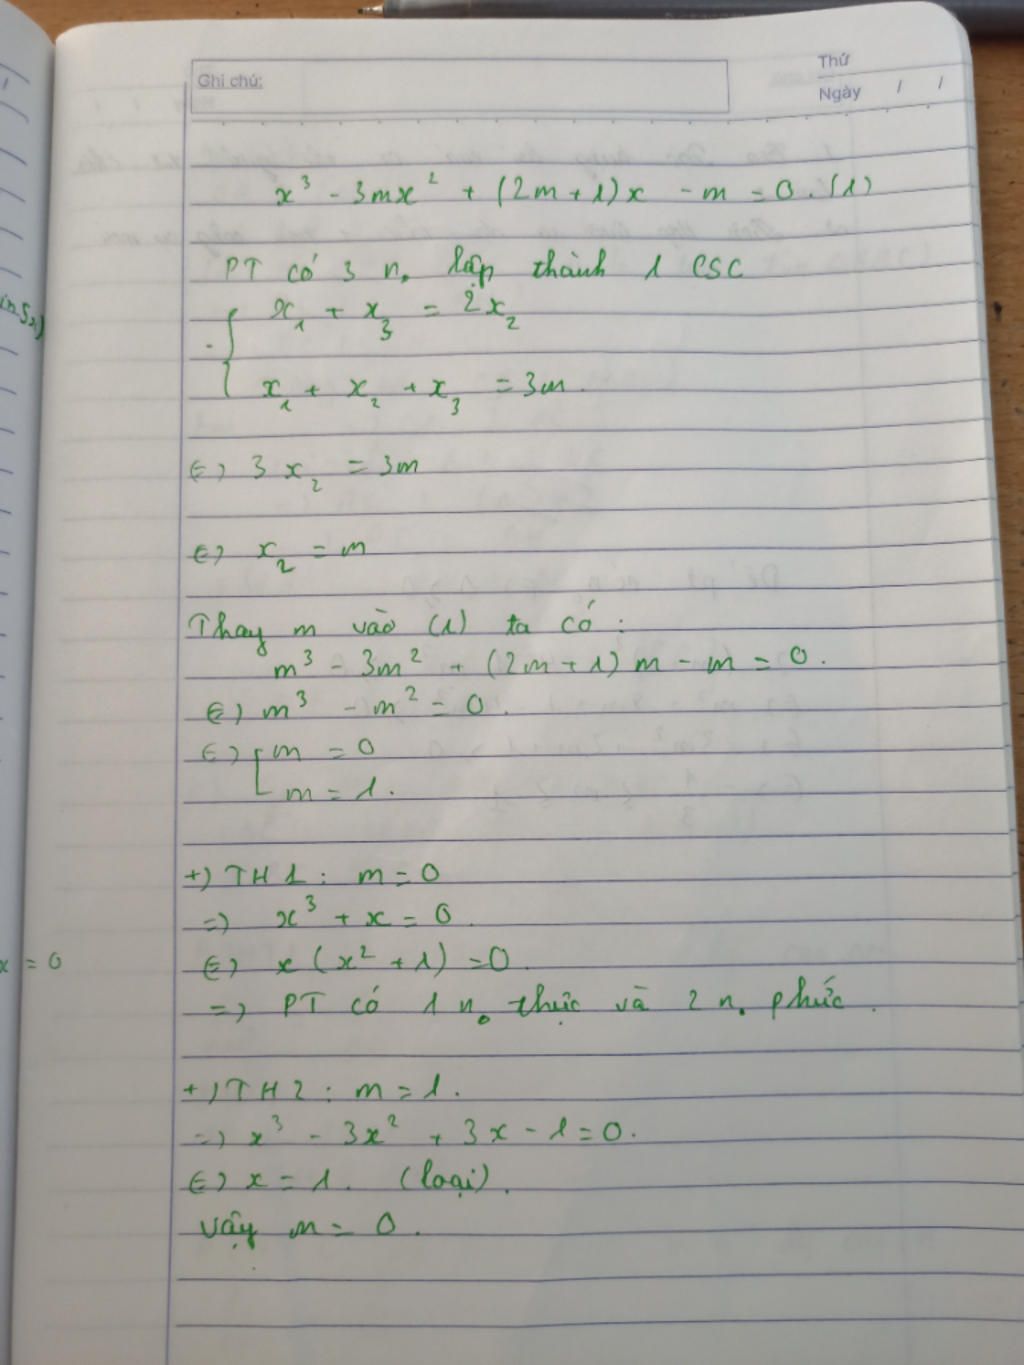 Ghi chú:
Thứ
Ngày / /
x³ - 3mx² + (2m+1)x - m = 0. (1)
PT có 3 n. lập thành 1 CSC
x₁ + x₃ = 2x₂
x₁ + x₂ + x₃ = 3m.
⇔ 3x₂ = 3m
⇔ x₂ = m
Thay m vào (1) ta có:
m³ - 3m² + (2m+1)m - m = 0.
⇔ m³ - m² = 0.
⇔ [ m = 0
m = 1.
+) TH1: m = 0
=> x³ + x = 0
⇔ x(x² + 1) = 0.
=> PT có 1 n₀ thực và 2 n. phức.
+) TH2: m = 1.
=> x³ - 3x² + 3x - 1 = 0.
⇔ x = 1. (loại).
Vậy m = 0.
x = 0